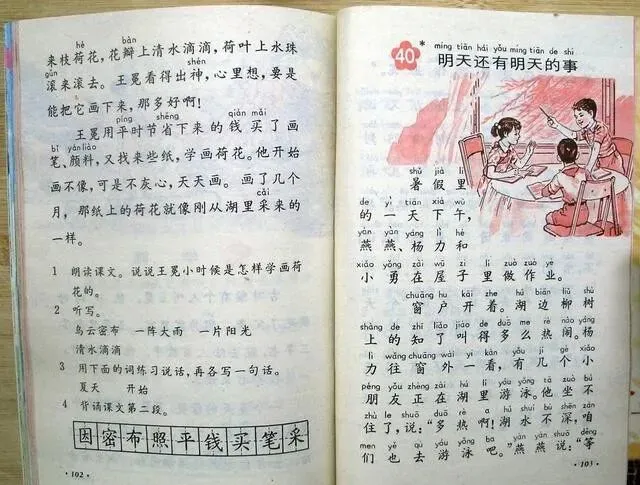 hé bàn
来枝荷花，花瓣上清水滴滴，荷叶上水珠
gǔn shén
滚来滚去。王冕看得出神，心里想，要是
能把它画下来，那多好啊！
píng shěng qián mǎi
王冕用平时节省下来的钱买了画
bǐ yánliào
笔、颜料，又找来些纸，学画荷花。他开始
画不像，可是不灰心，天天画。画了几个
cǎi
月，那纸上的荷花就像刚从湖里采来的
一样。
1 朗读课文。说说王冕小时候是怎样学画荷
花的。
2 听写。
乌云密布 一阵大雨 一片阳光
清水滴滴
3 用下面的词练习说话，再各写一句话。
夏天 开始
4 背诵课文第二段。
因密布照平钱买笔采
·102·
míng tiān hái yǒu míng tiān de shì
40* 明天还有明天的事
shǔ jià lǐ
暑假里
de yì tiān xià wǔ
的一天下午，
yàn yàn yáng lì hé
燕燕、杨力和
xiǎo yǒng zài wū zi lǐ zuò zuò yè
小勇在屋子里做作业。
chuāng hu kāi zhe hú biān liǔ shù
窗户开着。湖边柳树
shàng de zhī liǎo jiào de duō me rè nào yáng
上的知了叫得多么热闹。杨
lì wǎng chuāng wài yí kàn yǒu jǐ gè xiǎo
力往窗外一看，有几个小
péng yǒu zhèng zài hú lǐ yóu yǒng tā zuò bú
朋友正在湖里游泳。他坐不
zhù le shuō duō rè a hú shuǐ bù shēn zán
住了，说：“多热啊！湖水不深，咱
men yě qù yóu yǒng ba yàn yàn shuō děng
们也去游泳吧。”燕燕说：“等
·103·